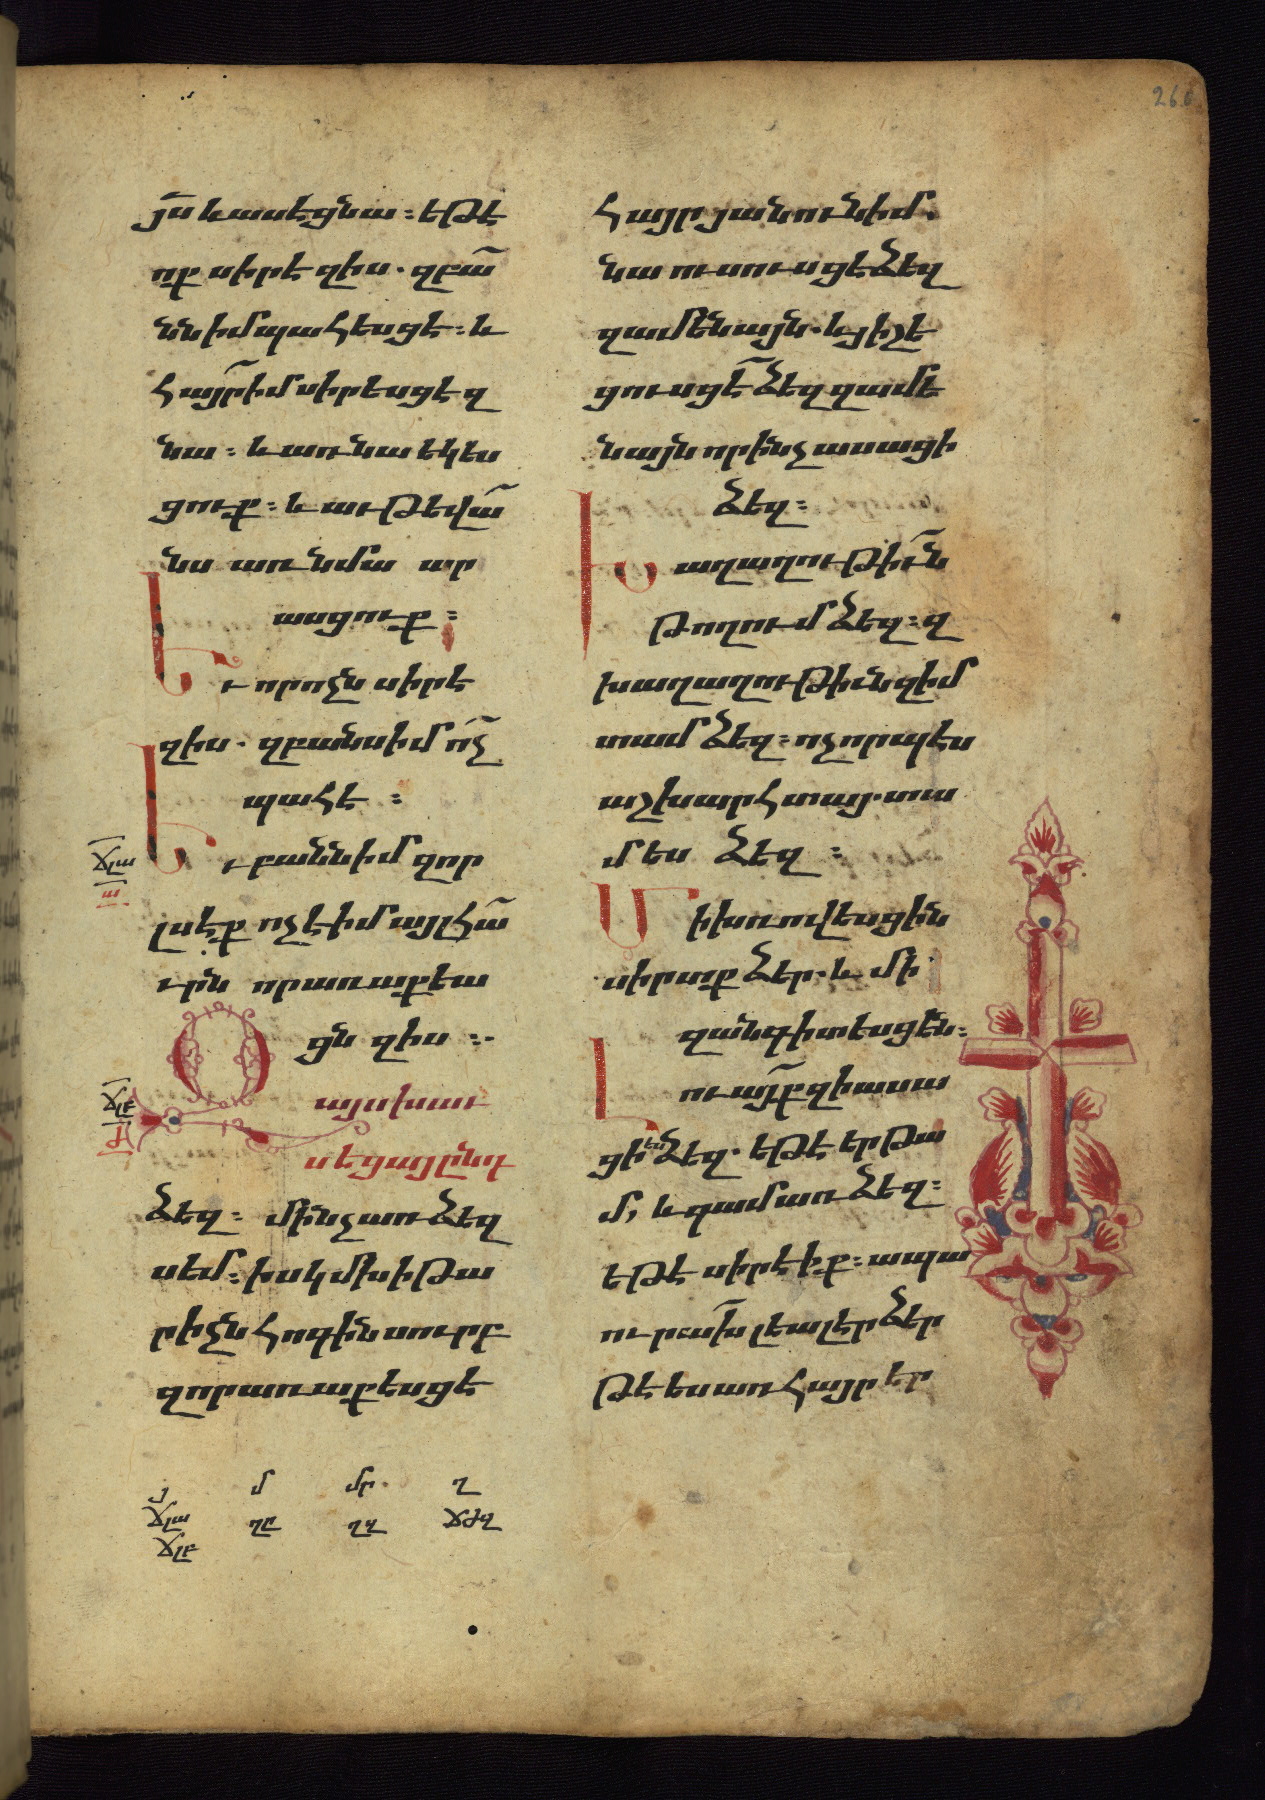 260
յս և ասէ ցնա : եթէ
ոք սիրէ զիս . զբա
նն իմ պահեսցէ : և
հայրիմ սիրեսցէ զ
նա : և առ նա եկես
ցուք : և աւթևա
նս առ նմա ար
ասցուք :
Եւ որ ոչն սիրէ
զիս . զբանս իմ ոչ
պահէ :
Եւ բանն իմ զոր
լսէք ոչ է իմ այլ հա
ւրն որ առաքեա
ցն զիս :
Զայս խաւ
սեցայ ընդ
ձեզ : մինչ առ ձեզ
սեմ : իսկ մխիթա
րիչն հոգին սուրբ
զոր առաքեսցէ
հայր յանուն իմ .
նա ուսուսցէ ձեզ
զամենայն . և յիշե
ցուսցէ ձեզ զամե
նայն որ ինչ ասացի
ձեզ :
Խաղաղութիւն
թողում ձեզ : զ
խաղաղութիւն զիմ
տամ ձեզ : ոչ որպէս
աշխարհ տայ . տա
մ ես ձեզ :
Մի խռովեսցին
սիրտք ձեր . և մի
զանգիտեսցեն :
Լուարուք զի ասա
ցի ես ձեզ . եթէ երթա
մ, և գամ առ ձեզ :
եթէ սիրէիք : ապա
ուրախ լեալ էր ձեր
թէ ես առ հայր եր
ՃԼԱ
Ա
ՃԼԲ
Դ
Յ Մ ՄՐ Ղ
ՃԼԱ ՂԸ ՂԶ ՃԺԶ
ՃԼԲ